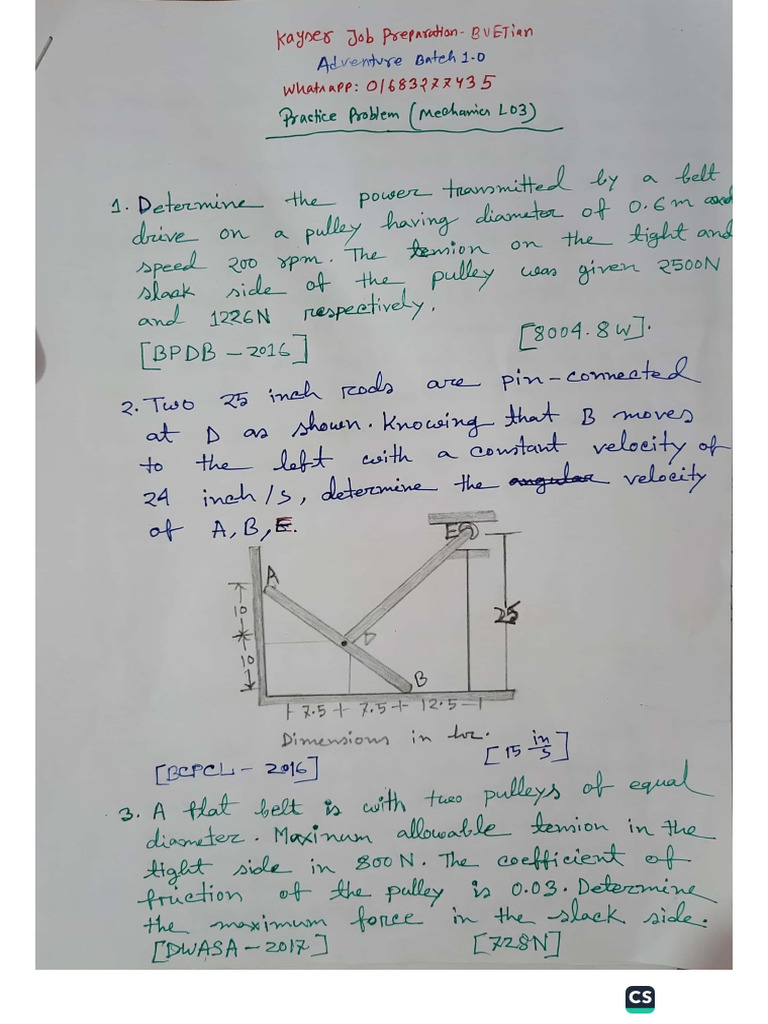 Kayser Job Preparation- BUETian
Adventure Batch 1.0
Whatsapp: 01683277435
Practice Problem (Mechanics L03)
1. Determine the power transmitted by a belt
drive on a pulley having diameter of 0.6m and
speed 200 rpm. The tension on the tight and
slack side of the pulley was given 2500N
and 1226N respectively.
[BPDB - 2016] [8004.8W].
2. Two 25 inch rods are pin-connected
at D as shown. Knowing that B moves
to the left with a constant velocity of
24 inch/s, determine the angular velocity
of A, B, E.
E
A
10
25
D
10
B
7.5 7.5 12.5
Dimensions in
[BCPCL - 2016] [15 in/s]
3. A flat belt is with two pulleys of equal
diameter. Maximum allowable tension in the
tight side in 800N. The coefficient of
friction of the pulley is 0.03. Determine
the maximum force in the slack side.
[DWASA - 2017] [728N]
CS